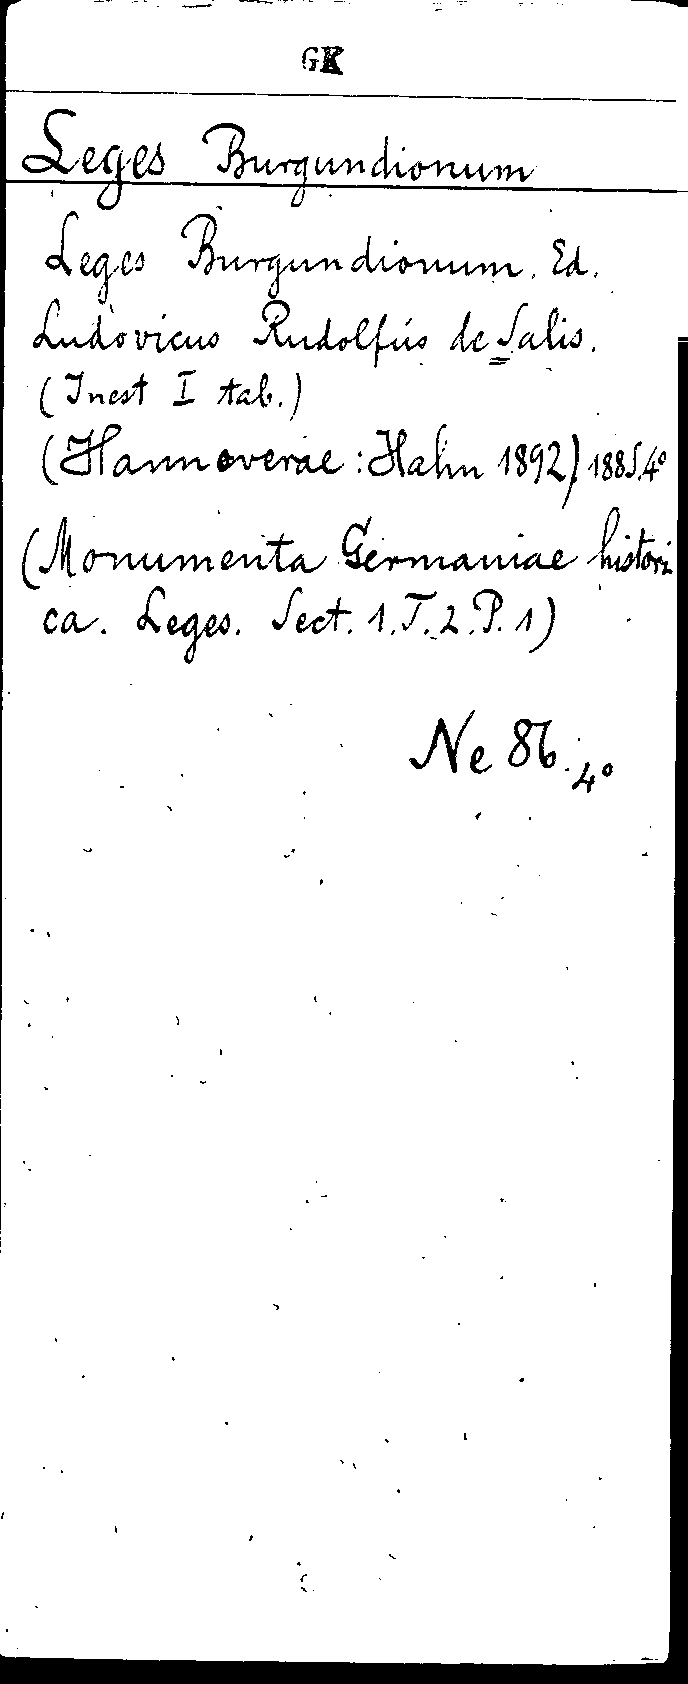 GK
Leges Burgundionum
Leges Burgundionum. Ed.
Ludovicus Rudolfus de Salis.
(Inest I tab.)
(Hannoverae: Hahn 1892) 188 S. 4°
(Monumenta Germaniae histori
ca. Leges. Sect. 1. T. 2. P. 1)
Ne 86. 4°